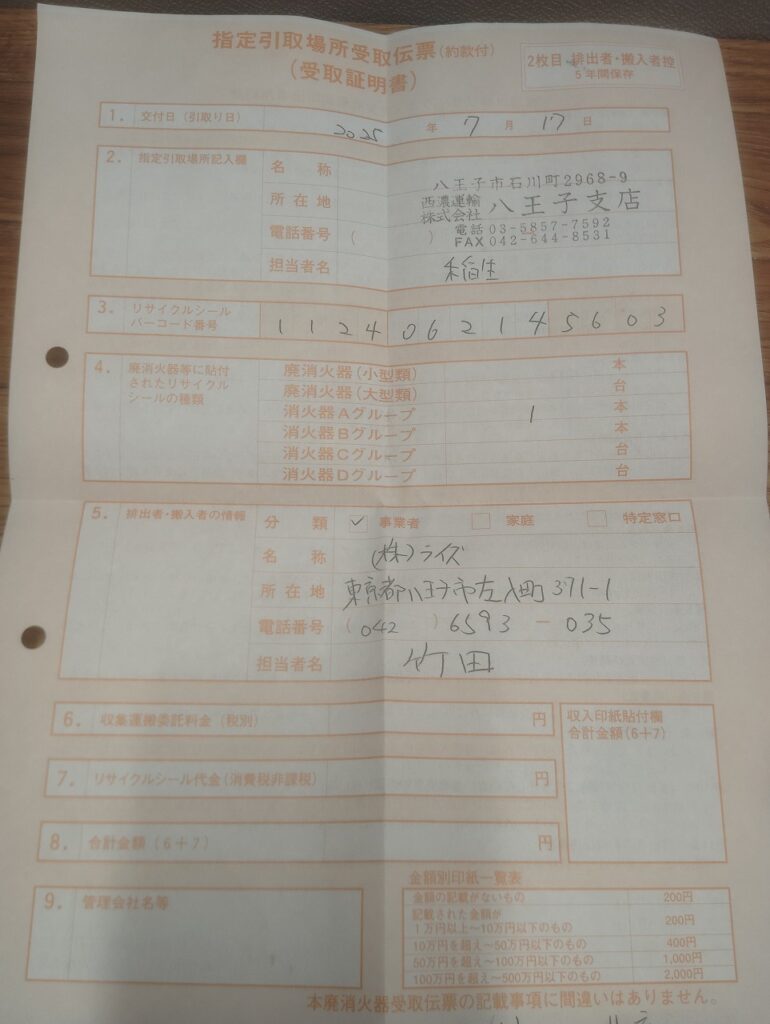 指定引取場所受取伝票(約款付)
(受取証明書)
2枚目・排出者・搬入者控
5年間保存
1. 交付日(引取り日) 2025 年 7 月 17 日
2. 指定引取場所記入欄
名 称
所在地
電話番号 ( )
担当者名
八王子市石川町2968-9
西濃運輸株式会社 八王子支店
電話 03-5857-7592
FAX 042-644-8531
稲生
3. リサイクルシールバーコード番号 1 1 2 4 0 6 2 1 4 5 6 0 3
4. 廃消火器等に貼付されたリサイクルシールの種類
廃消火器(小型類) 本
廃消火器(大型類) 台
消火器Aグループ 1 本
消火器Bグループ 本
消火器Cグループ 台
消火器Dグループ 台
5. 排出者・搬入者の情報
分 類 ✓ 事業者 家庭 特定窓口
名 称 (株)ライズ
所在地 東京都八王子市左入町371-1
電話番号 (042) 6593-035
担当者名 竹田
6. 収集運搬委託料金(税別) 円
7. リサイクルシール代金(消費税非課税) 円
8. 合計金額(6+7) 円
収入印紙貼付欄
合計金額(6+7)
9. 管理会社名等
金額別印紙一覧表
金額の記載がないもの 200円
記載された金額が
1万円以上~10万円以下のもの 200円
10万円を超え~50万円以下のもの 400円
50万円を超え~100万円以下のもの 1,000円
100万円を超え~500万円以下のもの 2,000円
本廃消火器受取伝票の記載事項に間違いはありません。